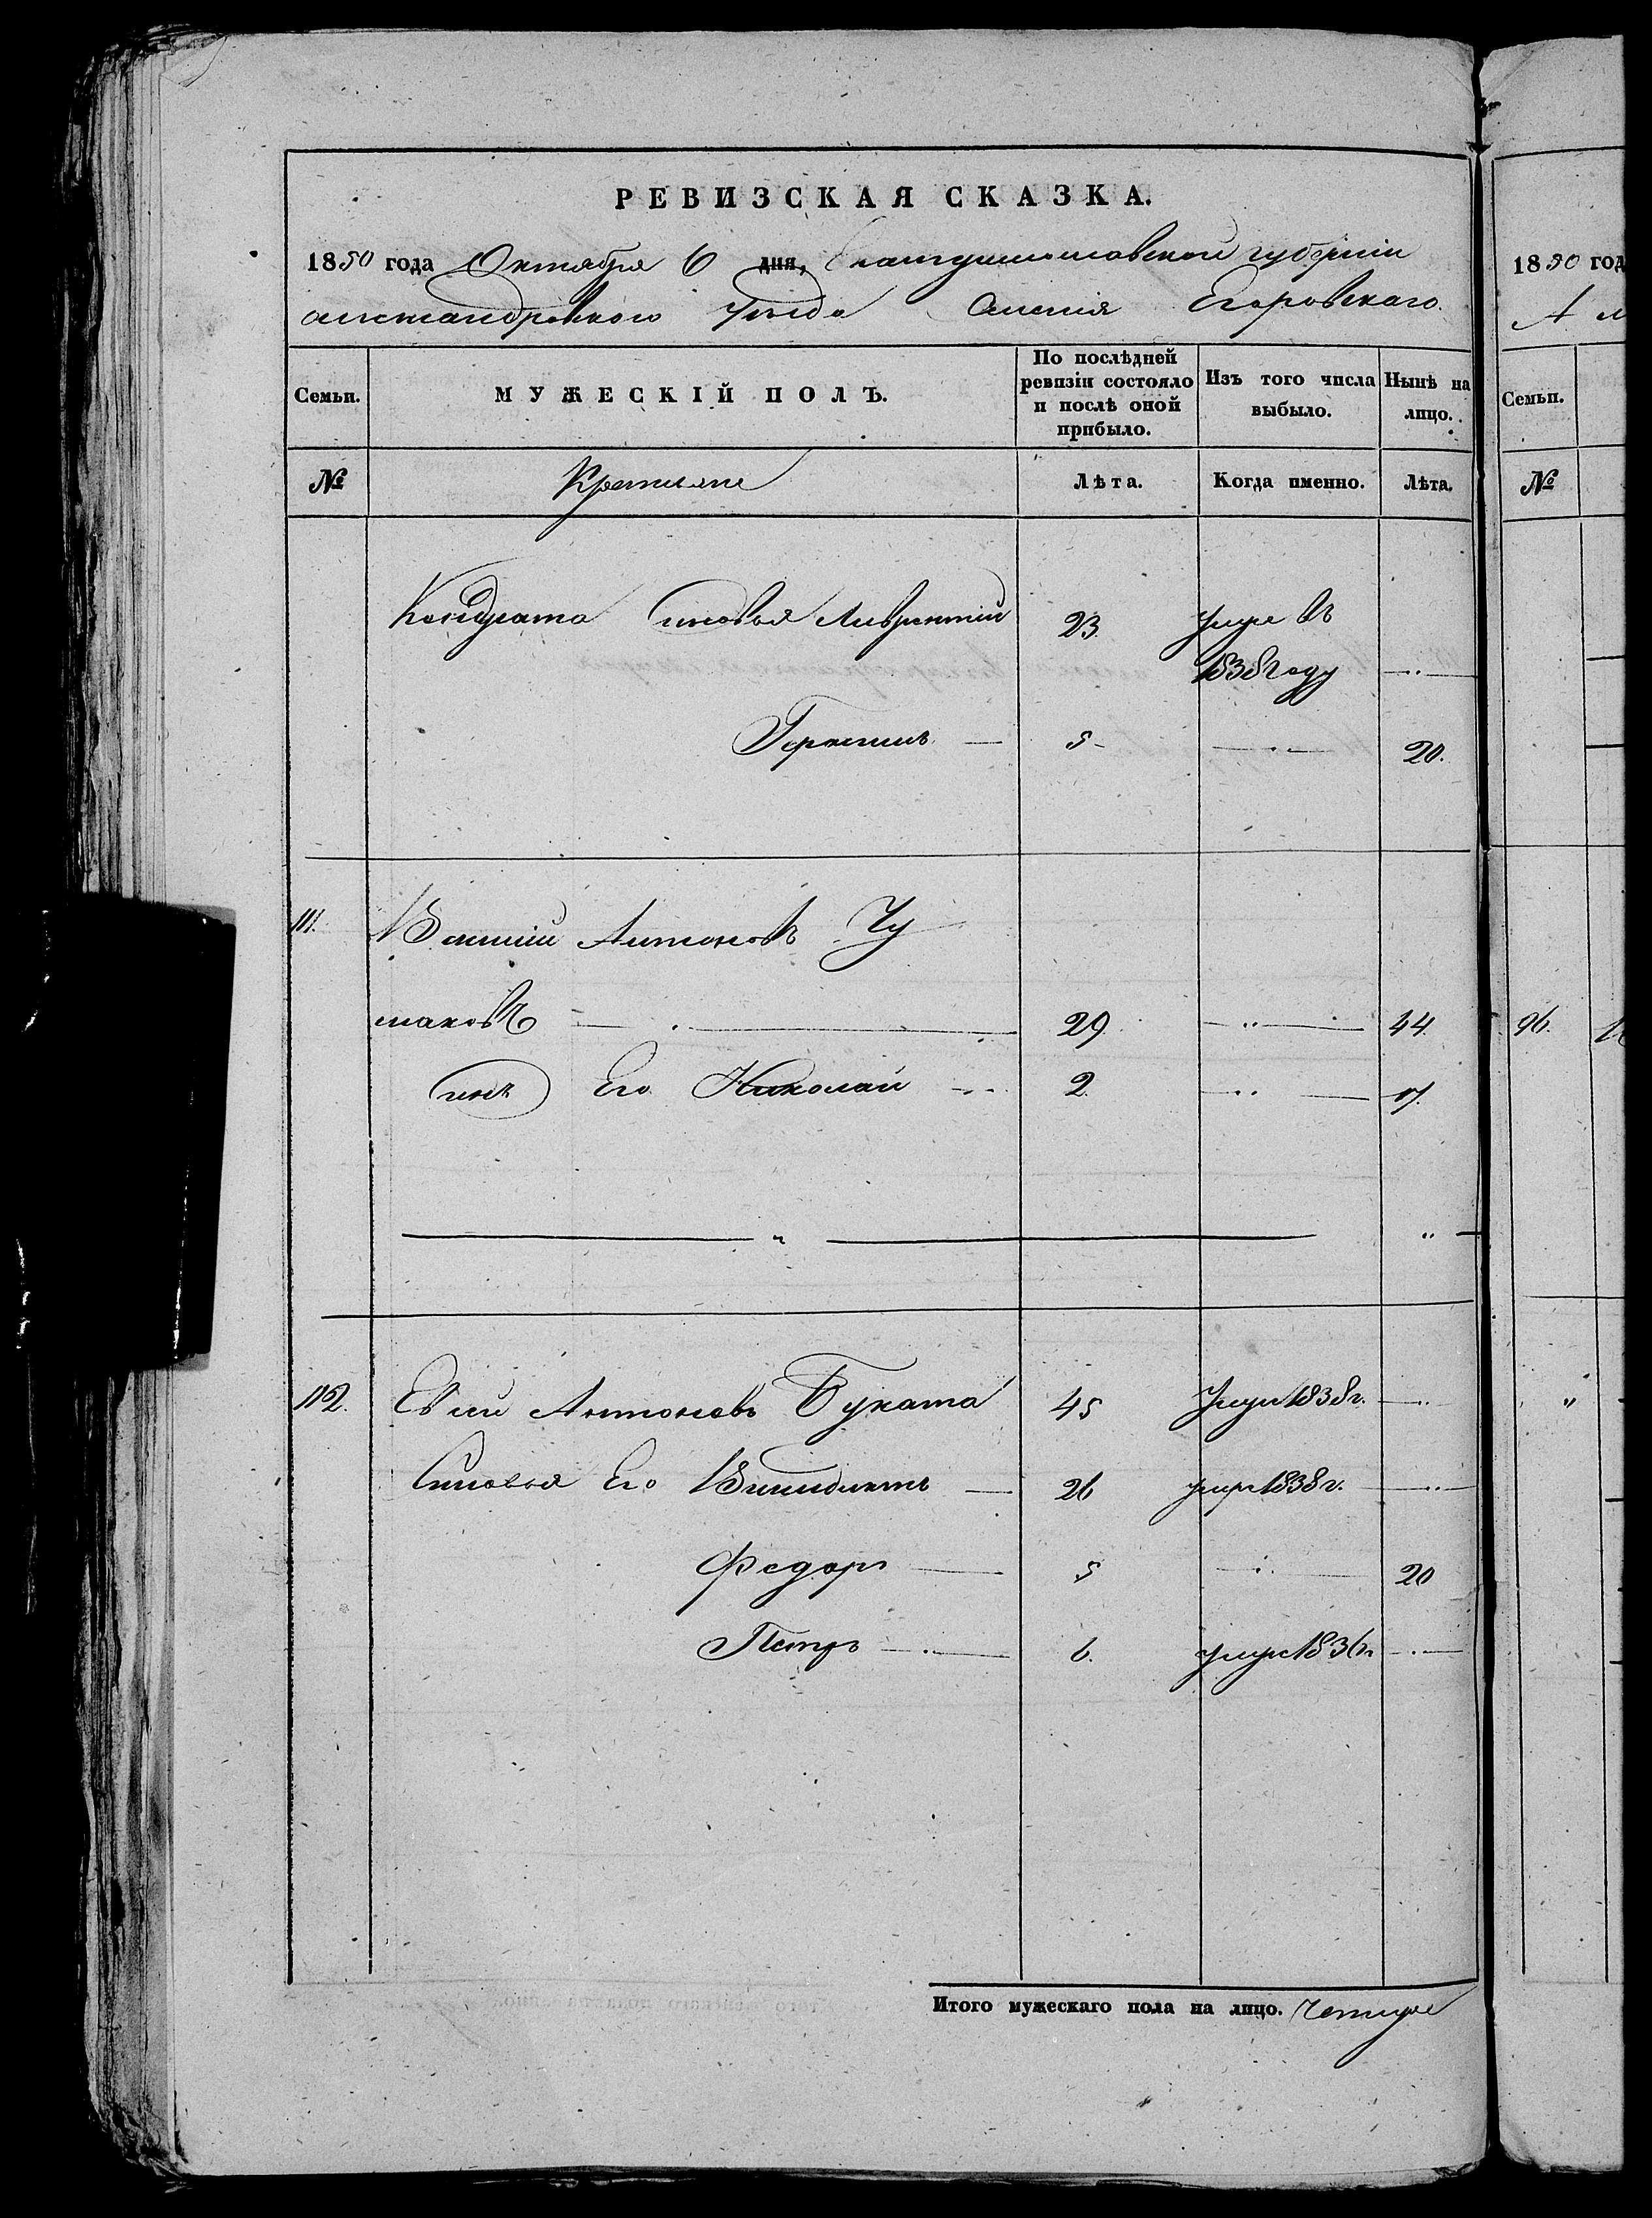 РЕВИЗСКАЯ СКАЗКА.
1850 года Октября 6 дня, Екатеринославской губерніи
Александровского Уезда Селенія Егоровскаго.
Семьи. МУЖЕСКІЙ ПОЛЪ. По послѣдней ревизіи состояло и послѣ оной прибыло. Изъ того числа выбыло. Нынѣ на лицо.
№ Крестьяне Лѣта. Когда именно. Лѣта.
Кондрата сыновья Лаврентій 23. умре въ
1838 году
Герасимъ 5 20.
111. Антоновъ Чу
маковъ 29. 44.
сынъ Его Николай 2. 17.
112. Антоновъ Буката 45 Умре 1838 г.
Сыновья Его 26 умре 1838 г.
Федоръ 5 20
Петръ 6. умре 1836 г
Итого мужескаго пола на лицо. Четыре
1850 год
А
Семьи.
№
96.